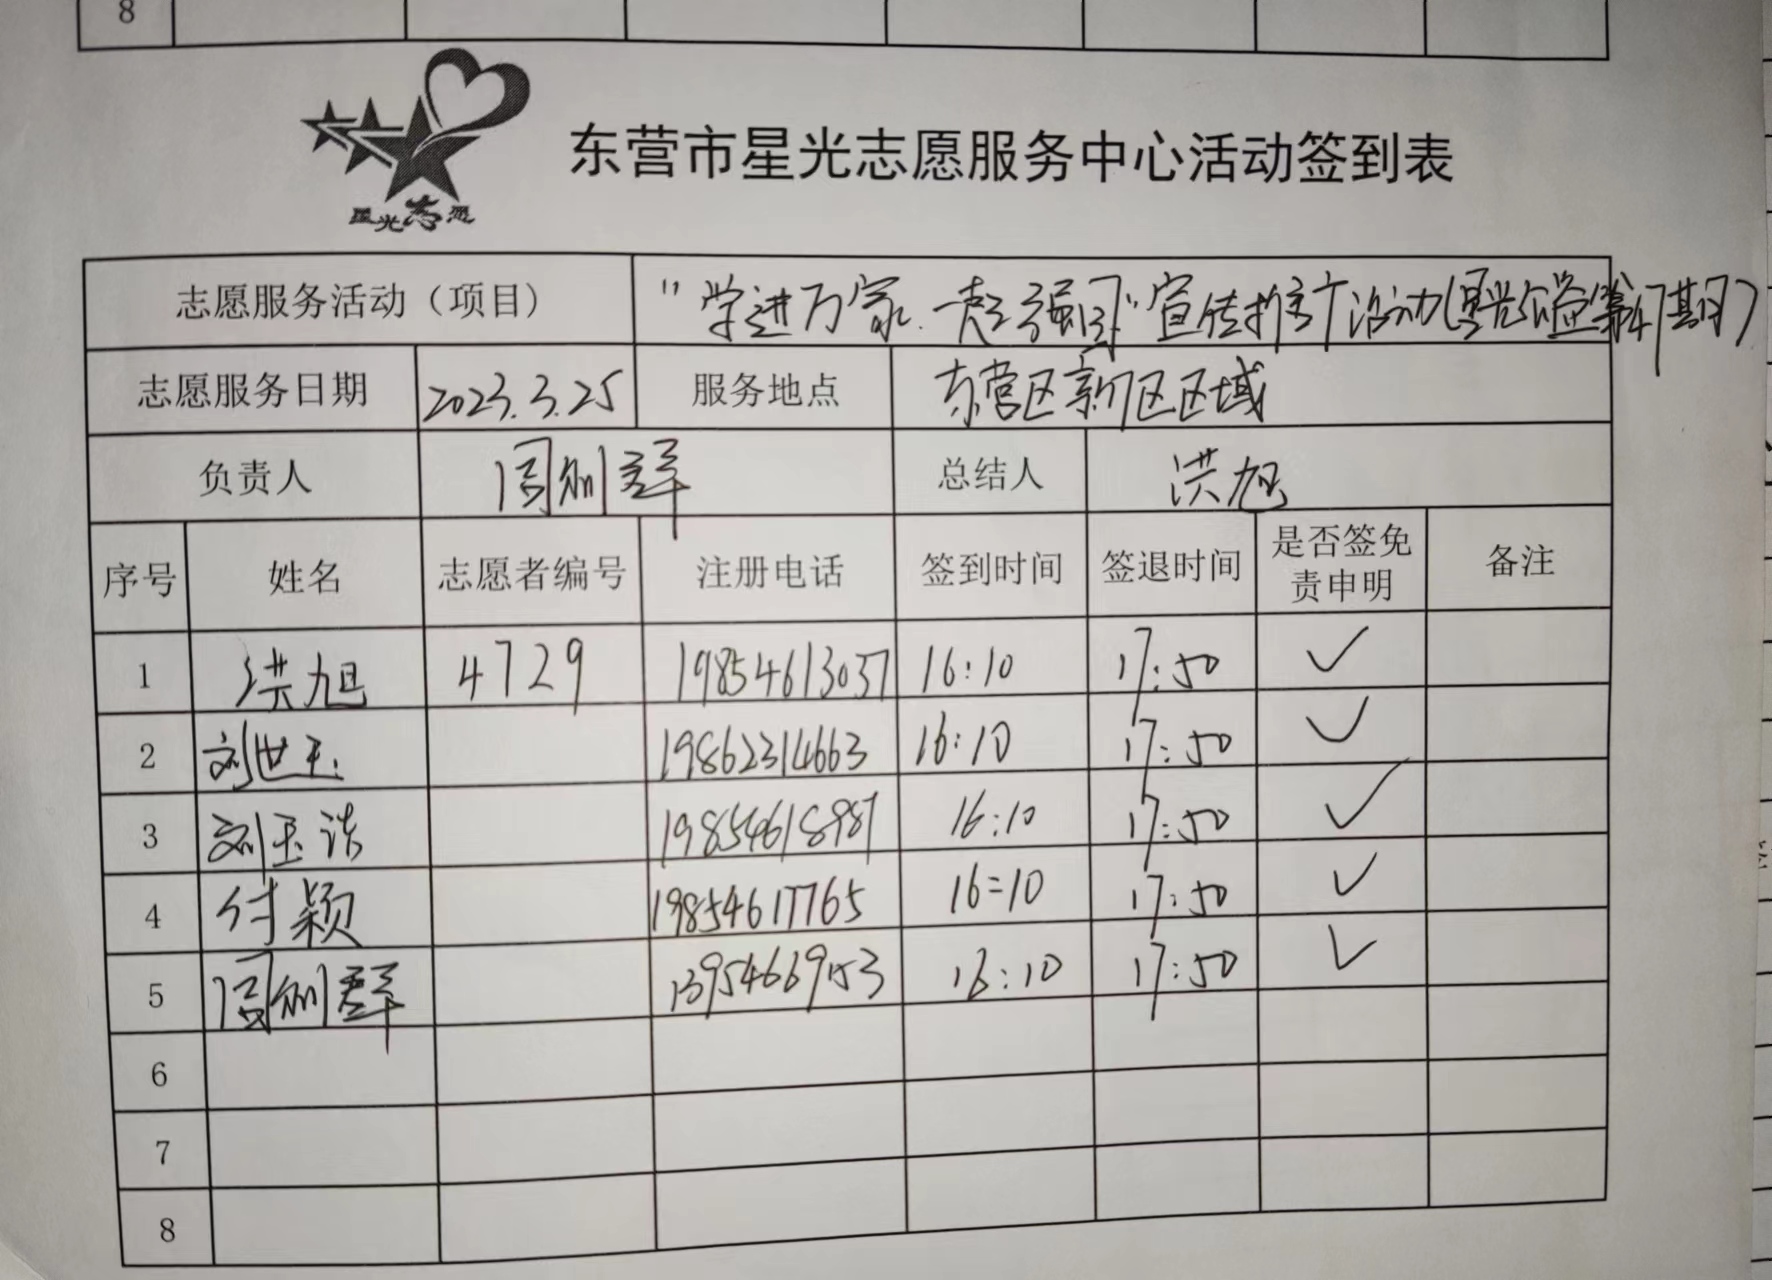 8
星光志愿
东营市星光志愿服务中心活动签到表
志愿服务活动（项目） "学进万家、一起强国"宣传推广活动(星光公益第47期)
志愿服务日期 2023.3.25 服务地点 东营区新区区域
负责人 总结人 洪旭
序号 姓名 志愿者编号 注册电话 签到时间 签退时间 是否签免责申明 备注
1 洪旭 4729 19854613037 16:10 17:50 ✓
2 刘世玉 19862314663 16:10 17:50 ✓
3 刘玉 19854618981 16:10 17:50 ✓
4 付颖 19854617765 16:10 17:50 ✓
5 13954669153 16:10 17:50 ✓
6
7
8